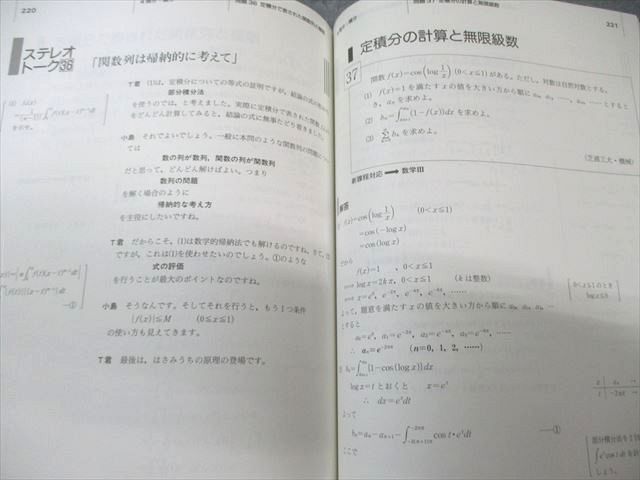 220
ステレオ
トーク36
「関数列は帰納的に考えて」
T君 (1)は，定積分についての等式の証明ですが，結論の式の形から
部分積分法
を使うのでは，と考えました。実際に定積分で表された関数
をどんどん計算してみると，結論の式に無事たどり着きました。
小島 それでよいでしょう。一般に本問のような関数列の問題につい
ては
数の列が数列，関数の列が関数列
だと思って，どんどん解けばよい。つまり
数列の問題
を解く場合のように
帰納的な考え方
を主役にしたいですね。
T君 だからこそ，(1)は数学的帰納法でも解けるのですね。さて，
ですが，これは(1)を使わせたいのでしょう。①のような
式の評価
を行うことが最大のポイントなのですね。
小島 そうなんです。そしてそれを行うと，もう1つ条件
|f(x)|≦M (0≦x≦1)
の使い方も見えてきます。
T君 最後は，はさみうちの原理の登場です。
問題 37 定積分の計算と無限級数
221
定積分の計算と無限級数
37
関数 f(x)=cos(log 1/x) (0<x≦1) がある。ただし，対数は自然対数とする。
(1) f(x)=1 を満たす x の値を大きい方から順に a₀, a₁, ……, aₙ, …… とすると
き，aₙ を求めよ。
(2) bₙ=∫(1−f(x))dx を求めよ。
(3) Σbₙ を求めよ。
(芝浦工大・機械)
新課程対応 → 数学III
解答
f(x)=cos(log 1/x) (0<x≦1)
=cos(−log x)
=cos(log x)
であるから
f(x)=1 , 0<x≦1
⇔ log x=2kπ, 0<x≦1 (k は整数)
0<x≦1 のとき
log x≦0
よって，題意を満たす x の値を大きい方から順に a₀, a₁, a₂, …
とすると
∴ aₙ=e⁻²ⁿπ (n=0, 1, 2, ……)
bₙ=∫{1−cos(log x)}dx
log x=t とおくと x=eᵗ
∴ dx=eᵗdt
よって
bₙ=aₙ−aₙ₊₁−∫cos t・eᵗdt ──①
ここで